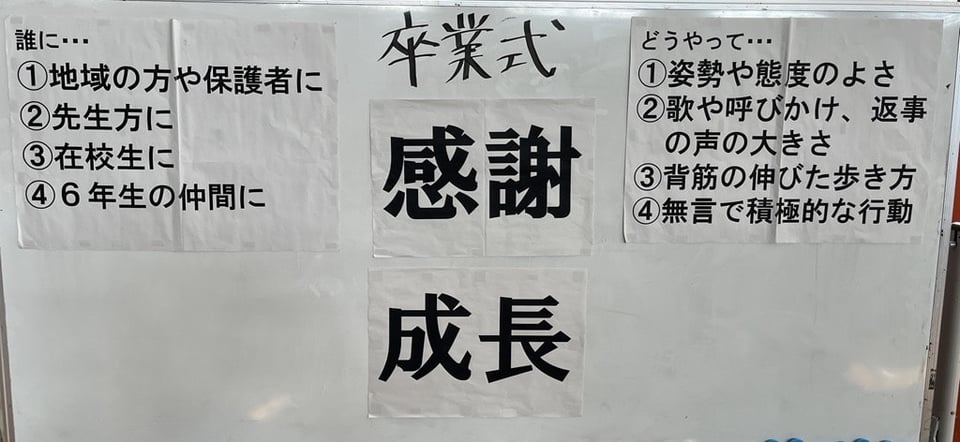 卒業式
誰に…
①地域の方や保護者に
②先生方に
③在校生に
④６年生の仲間に
感謝
成長
どうやって…
①姿勢や態度のよさ
②歌や呼びかけ、返事
の声の大きさ
③背筋の伸びた歩き方
④無言で積極的な行動